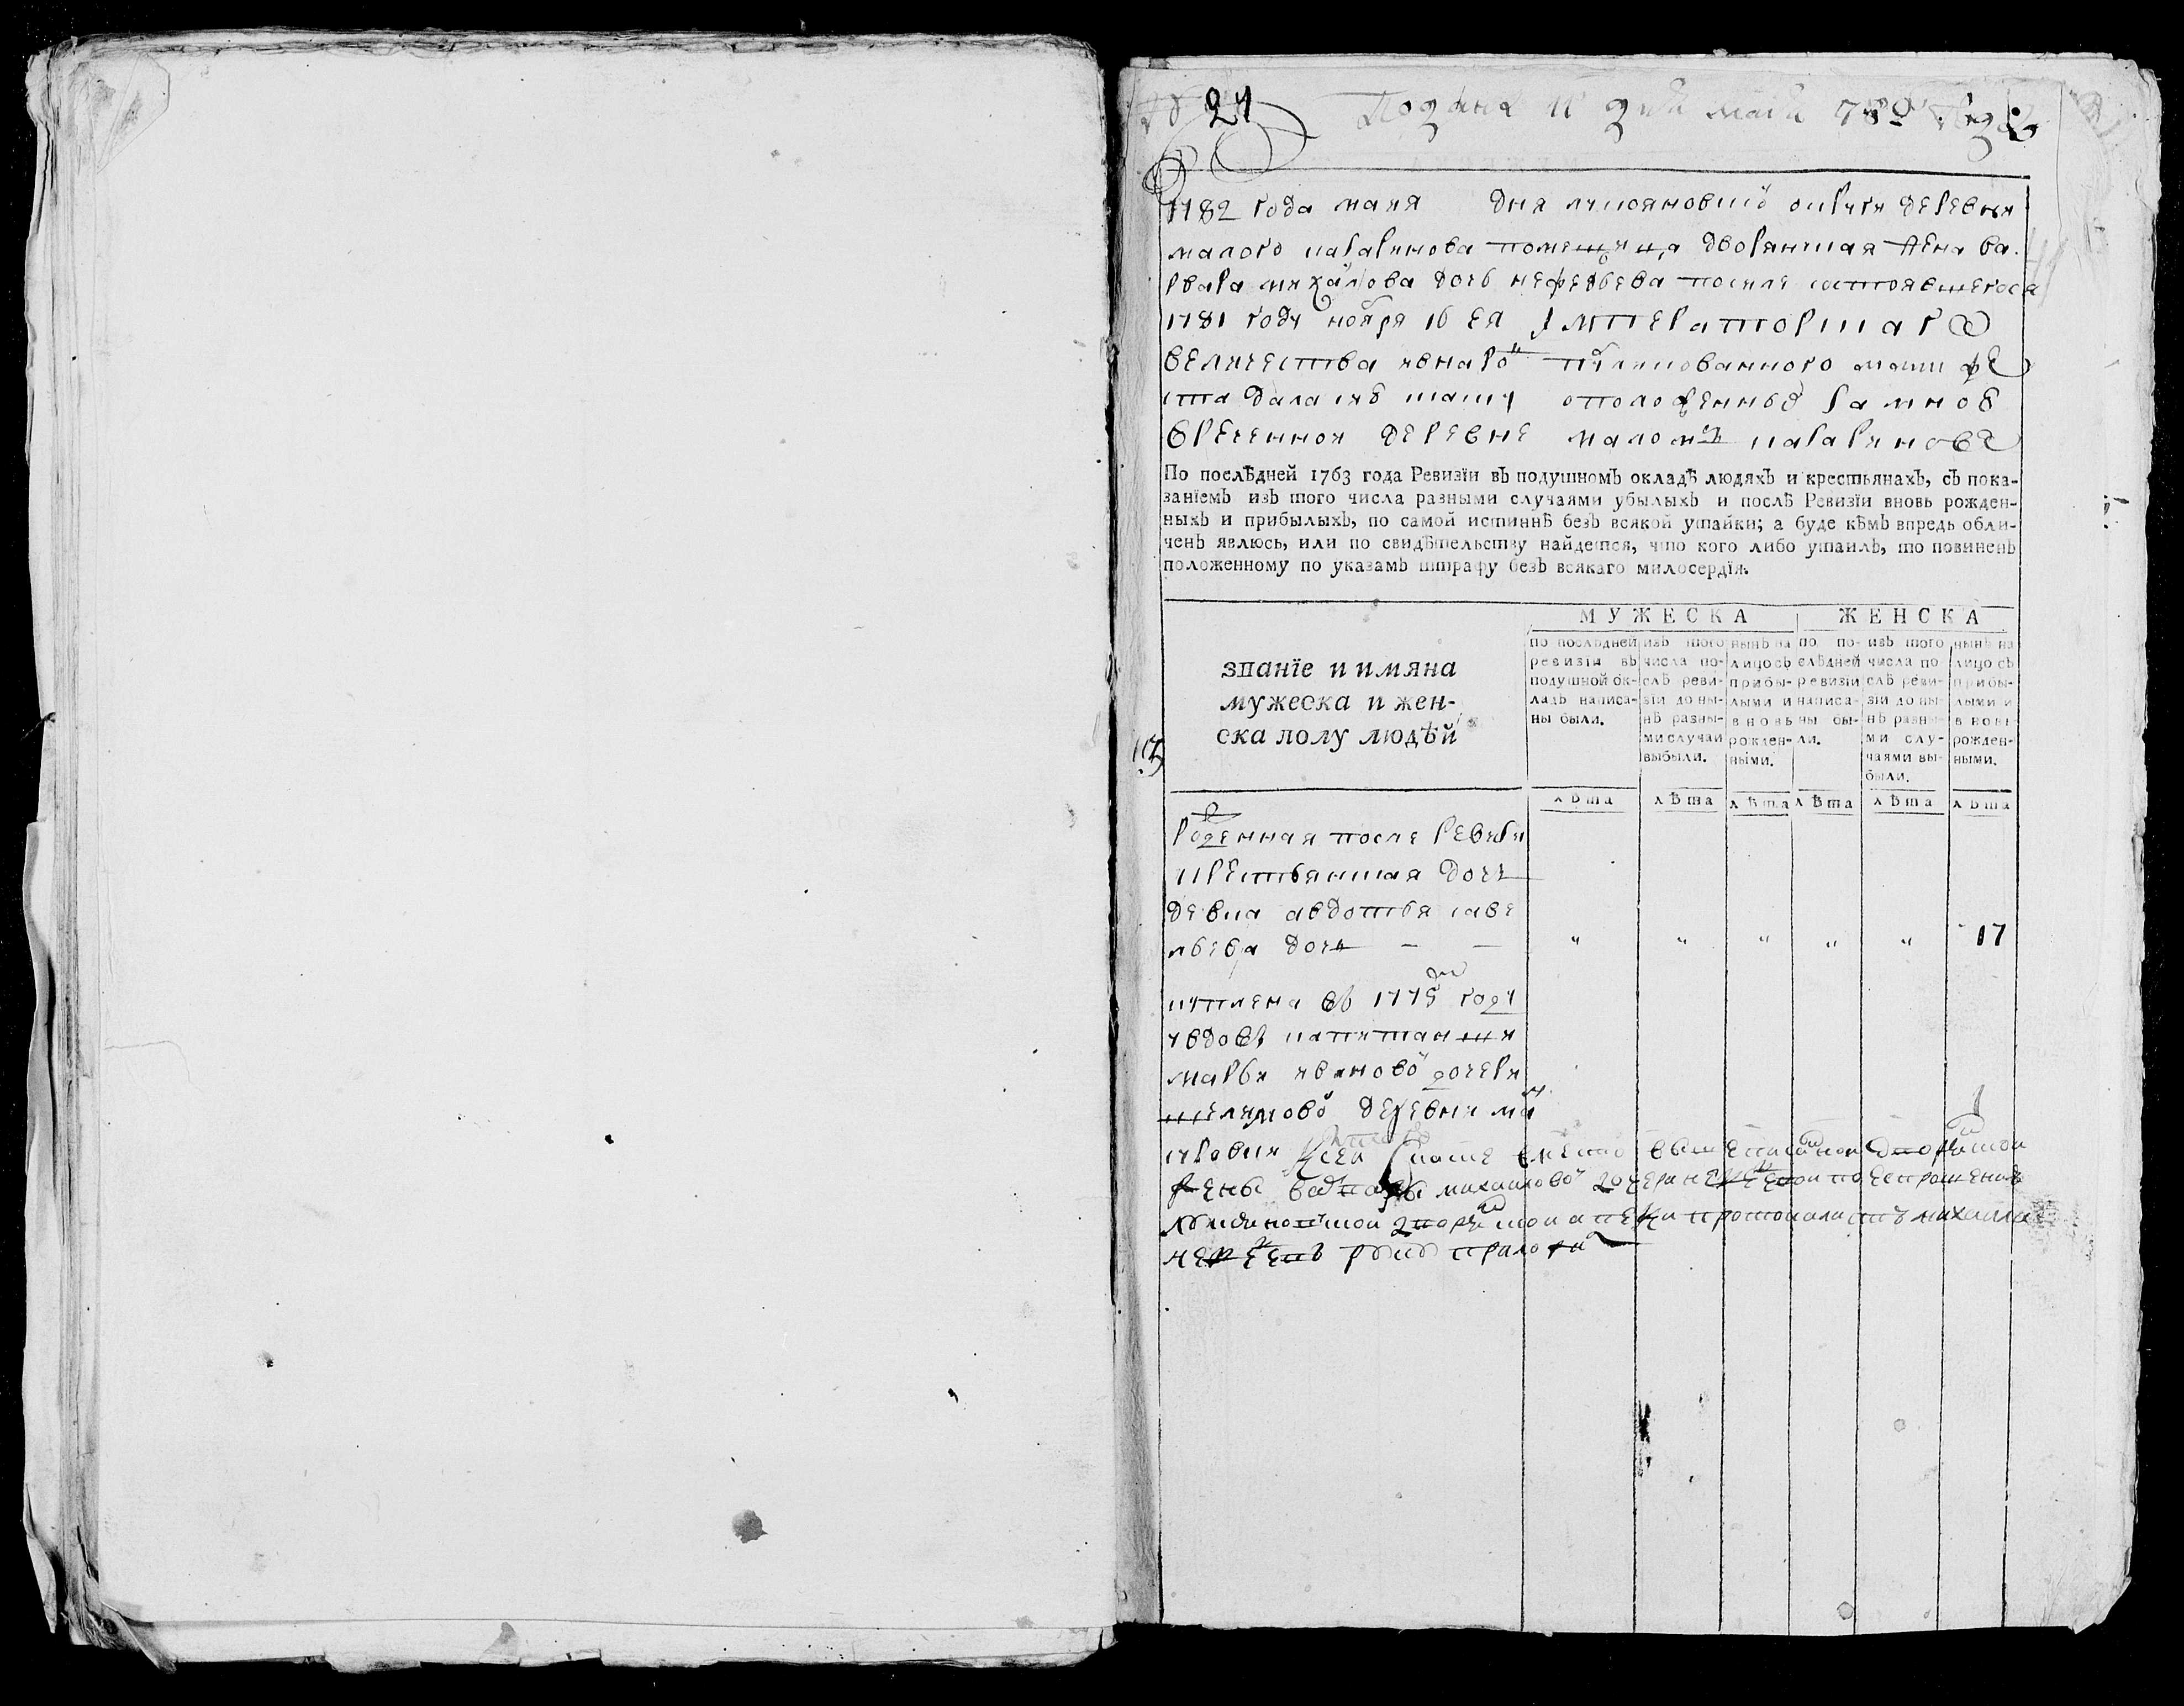 24 Подана 11 дня маия 782 года
1782 года маия дня лукояновской округи деревни
малого макарянова помещица дворянская жена ва
рвара михайлова дочь нефедьева после состоявшегося
1781 году ноября 16 ея Императорскаго
величества имянного публикованного манифе
ста дала сию скаску о положенных за мною
деревне малом
По послѣдней 1763 года Ревизіи въ подушномъ окладѣ людяхъ и крестьянахъ, съ пока-
заніемъ изъ того числа разными случаями убылыхъ и послѣ Ревизіи вновь рожден-
ныхъ и прибылыхъ, по самой истиннѣ безъ всякой утайки; а буде кѣмъ впредь обли-
ченъ явлюсь, или по свидѣтельству найдется, что кого либо утаилъ, то повиненъ
положенному по указамъ штрафу безъ всякаго милосердія.
МУЖЕСКА ЖЕНСКА
званіе и имяна
мужеска и жен-
ска полу людѣй
по послѣдней ревизіи въ подушной ок-ладъ написа-ны были.
изъ того числа по-слѣ реви-зіи до ны-нѣ разны-ми случаи выбыли.
нынѣ на лицо съ прибы-лыми и вновь рожден-ными.
по по-слѣдней ревизіи написа-ны бы-ли.
изъ того числа по слѣ реви-зіи до ны-нѣ разны-ми слу-чаями вы-были.
нынѣ на лицо съ прибы-лыми и вновь рожден-ными.
лѣта лѣта лѣта лѣта лѣта лѣта
Роженная после ревизи
крестьянская дочь
девка авдотья саве
льева дочь - - " " " " " 17
куплена въ 1775 году
у вдовы капитанши
марьи ивановой дочери
деревни ма
к сей скаске вместо вышеписанной дворянской
жены варвары михайловой дочери нефедьевой по ее прошению
михаила
нефедьевъ руку приложил